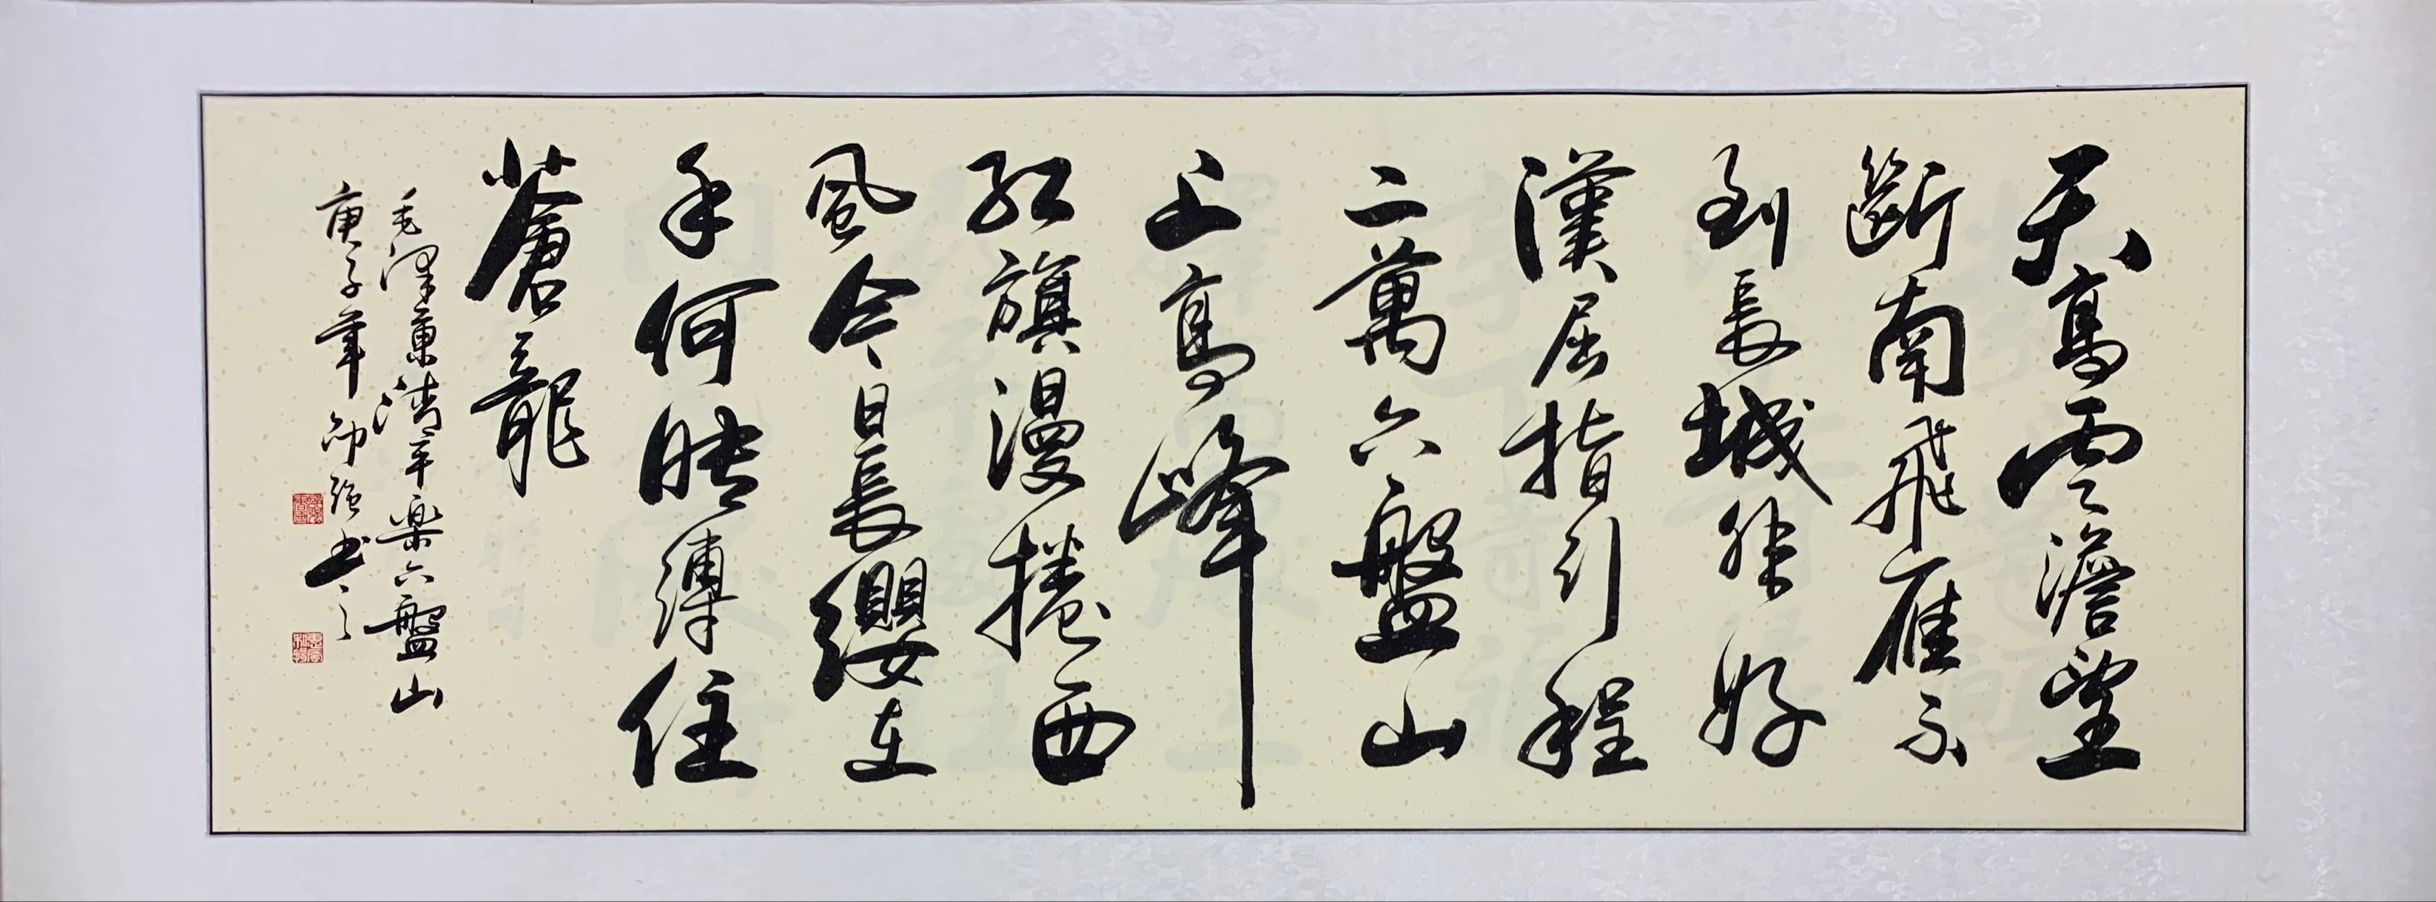 天高雲澹望
斷南飛雁不
到長城非好
漢屈指行程
二萬六盤山
上高峰
紅旗漫捲西
風今日長纓在
手何時縛住
蒼龍
毛澤東清平樂六盤山
庚子年 強書